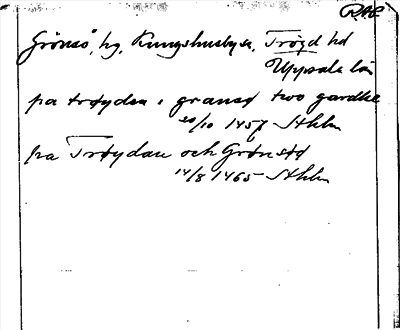 RAÄ
Grönsö, hg, Kungshusby sn, Trögd hd
Uppsala län
pa trøyden i gransø two gardha
20/10 1457 Sthlm
pa Trøydan och Grønsø
14/8 1465 Sthlm